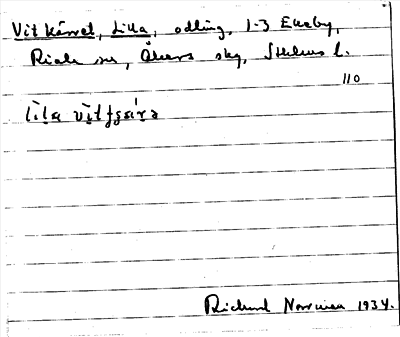 Vit kärret, Lilla, odling, 1-3 Ekeby,
Riala sn, Åkers skg, Sthlms l.
110
lìla vìtʃæ̀rə
Richard Norrman 1934.